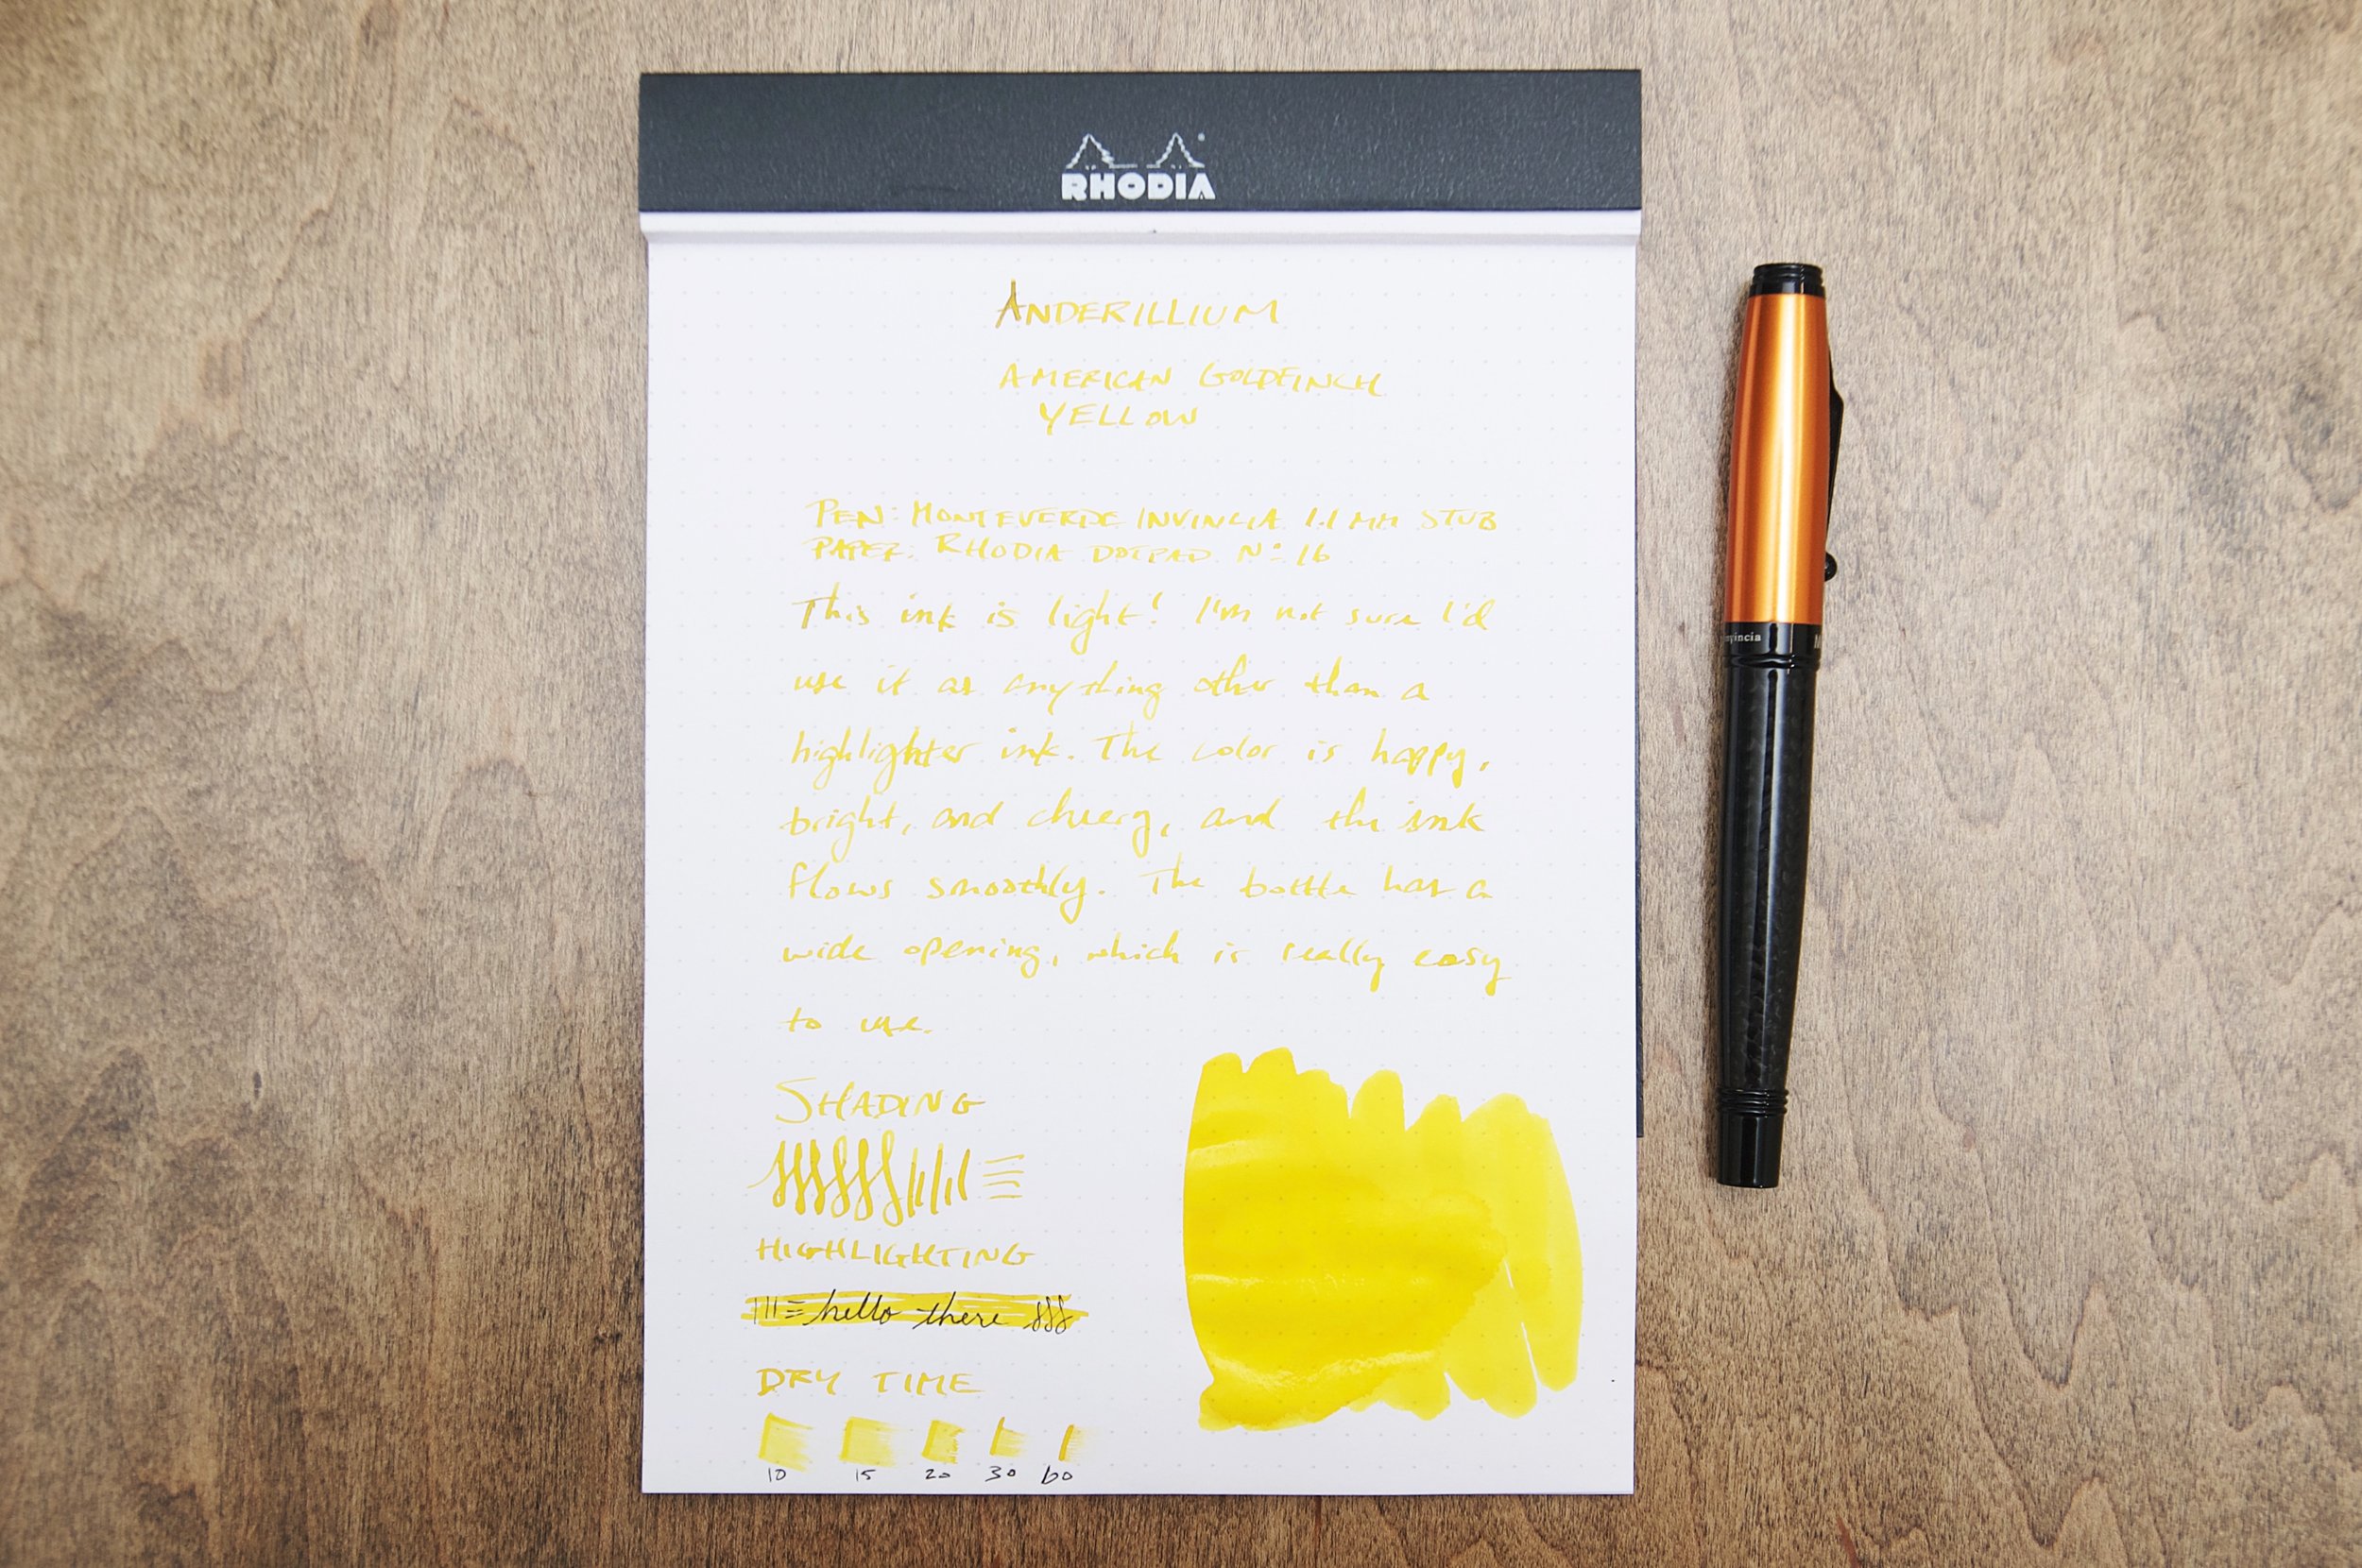 RHODIA
ANDERILLIUM
AMERICAN GOLDFINCH
YELLOW
PEN: MONTEVERDE INVINCIA 1.1 MM STUB
PAPER: RHODIA DOTPAD Nº 16
This ink is light! I'm not sure I'd
use it as anything other than a
highlighter ink. The color is happy,
bright, and cheery, and the ink
flows smoothly. The bottle has a
wide opening, which is really easy
to use.
SHADING
HIGHLIGHTING
hello there
DRY TIME
10 15 20 30 60
invincia